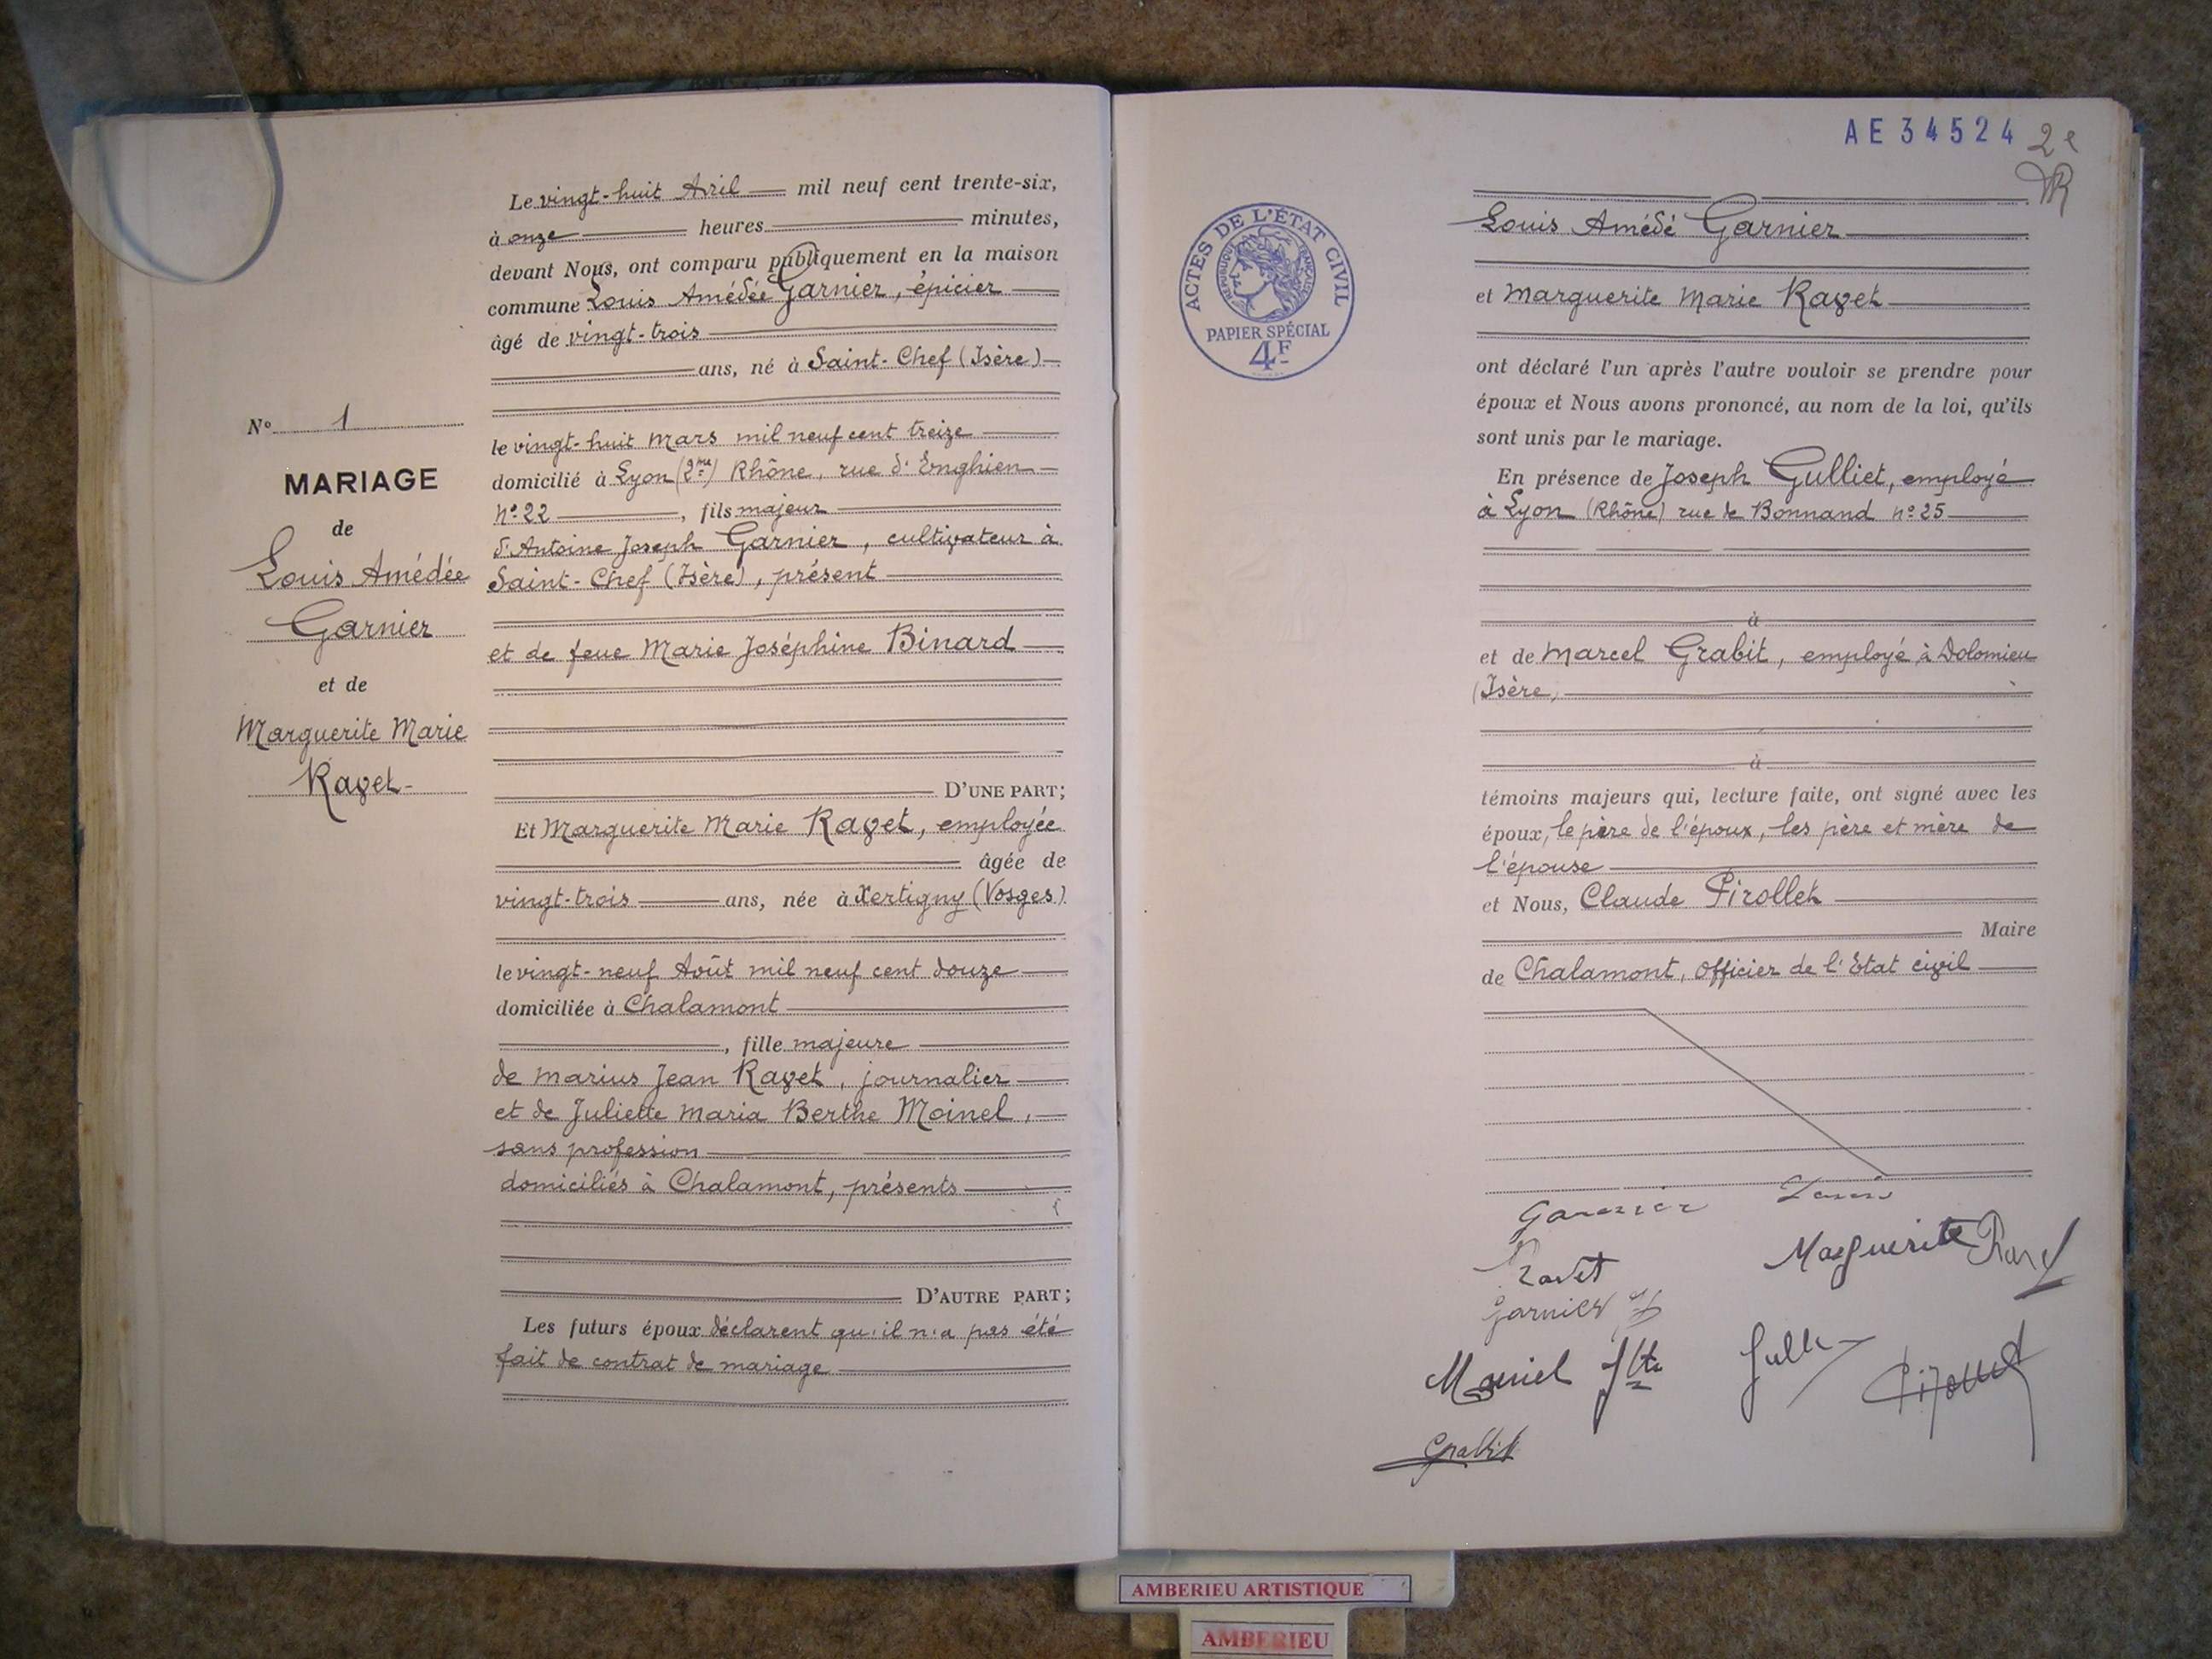 Le vingt-huit Avril mil neuf cent trente-six,
à onze heures minutes,
devant Nous, ont comparu publiquement en la maison
commune Louis Amédée Garnier, épicier
âgé de vingt-trois
ans, né à Saint-Chef (Isère)
le vingt-huit mars mil neuf cent treize
domicilié à Lyon (2me) Rhône, rue d'Enghien
nº 22, fils majeur
d'Antoine Joseph Garnier, cultivateur à
Saint-Chef (Isère), présent
et de feue Marie Joséphine Binard
D'UNE PART;
Et Marguerite Marie Ravet, employée
âgée de
vingt-trois ans, née à Xertigny (Vosges)
le vingt-neuf Août mil neuf cent douze
domiciliée à Chalamont
, fille majeure
de Marius Jean Ravet, journalier
et de Juliette Maria Berthe Moinel,
sans profession
domiciliés à Chalamont, présents
D'AUTRE PART;
Les futurs époux déclarent qu'il n'a pas été
fait de contrat de mariage
Nº 1
MARIAGE
de
Louis Amédée
Garnier
et de
Marguerite Marie
Ravet
AE34524
2e
ACTES DE L'ÉTAT CIVIL
RÉPUBLIQUE FRANÇAISE
PAPIER SPÉCIAL
4F
Louis Amédé Garnier
et Marguerite Marie Ravet
ont déclaré l'un après l'autre vouloir se prendre pour
époux et Nous avons prononcé, au nom de la loi, qu'ils
sont unis par le mariage.
En présence de Joseph Gulliet, employé
à Lyon (Rhône) rue de Bonnand nº 25
à
et de Marcel Grabit, employé à Dolomieu
(Isère)
à
témoins majeurs qui, lecture faite, ont signé avec les
époux, le père de l'époux, les père et mère de
l'épouse
et Nous, Claude Pirollet
Maire
de Chalamont, officier de l'Etat civil
Garnier Louis
Marguerite Ravet
Ravet
Garnier
Moinel
Grabit
AMBERIEU ARTISTIQUE
AMBERIEU